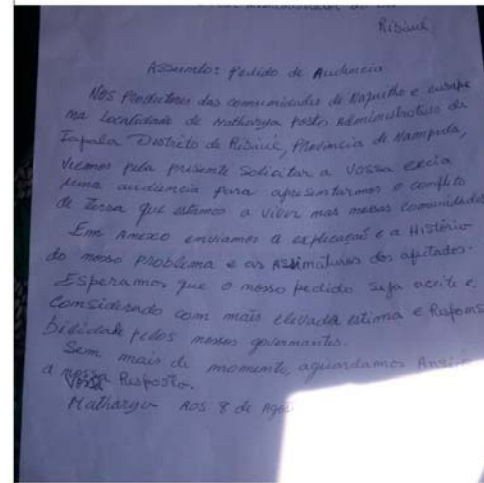 Ribáuè
Assunto: Pedido de Audiencia
Nós Produtores das comunidades de e
na Localidade de Matharya posto Administrativo de
Iapala Destrito de Ribáuè, Província de Nampula,
Viemos pela presente Solicitar a Vossa excia
uma audiencia para apresentarmos o conflito
de terra que estamos a viver nas nossas comunidades
Em Anexo enviamos a explicação e a História
do nosso problema e as Assinaturas dos afetados.
Esperamos que o nosso pedido seja aceite e
Considerado com mais elevada estima e Respons
bilidade pelos nossos governantes.
Sem mais de momento, aguardamos
a Resposta.
Matharya Aos 8 de